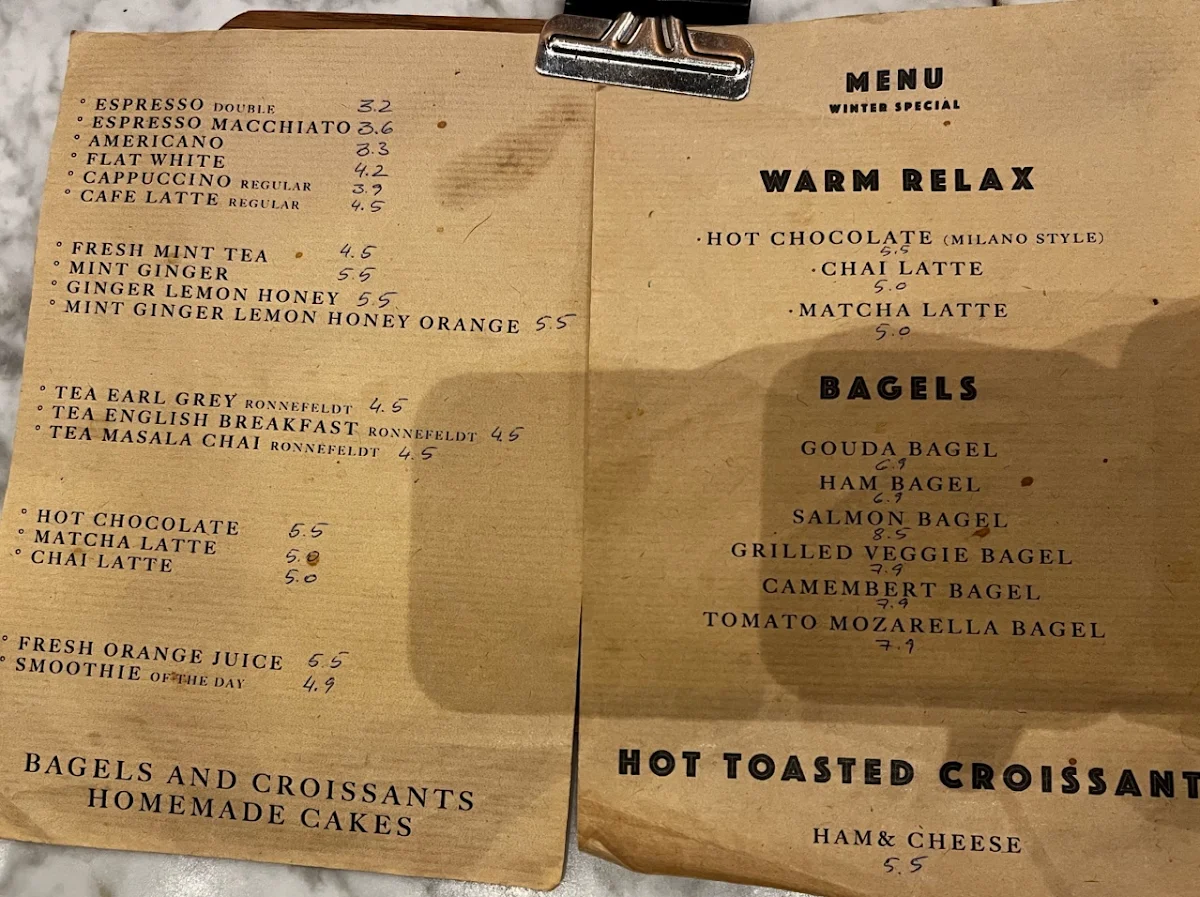 ° ESPRESSO DOUBLE 3.2
° ESPRESSO MACCHIATO 3.6
° AMERICANO 3.3
° FLAT WHITE 4.2
° CAPPUCCINO REGULAR 3.9
° CAFE LATTE REGULAR 4.5
° FRESH MINT TEA 4.5
° MINT GINGER 5.5
° GINGER LEMON HONEY 5.5
° MINT GINGER LEMON HONEY ORANGE 5.5
° TEA EARL GREY RONNEFELDT 4.5
° TEA ENGLISH BREAKFAST RONNEFELDT 4.5
° TEA MASALA CHAI RONNEFELDT 4.5
° HOT CHOCOLATE 5.5
° MATCHA LATTE 5.0
° CHAI LATTE 5.0
° FRESH ORANGE JUICE 5.5
° SMOOTHIE OF THE DAY 4.9
BAGELS AND CROISSANTS
HOMEMADE CAKES
MENU
WINTER SPECIAL
WARM RELAX
·HOT CHOCOLATE (MILANO STYLE)
5.5
·CHAI LATTE
5.0
·MATCHA LATTE
5.0
BAGELS
GOUDA BAGEL
6.9
HAM BAGEL
6.9
SALMON BAGEL
8.5
GRILLED VEGGIE BAGEL
7.9
CAMEMBERT BAGEL
7.9
TOMATO MOZARELLA BAGEL
7.9
HOT TOASTED CROISSANT
HAM& CHEESE
5.5